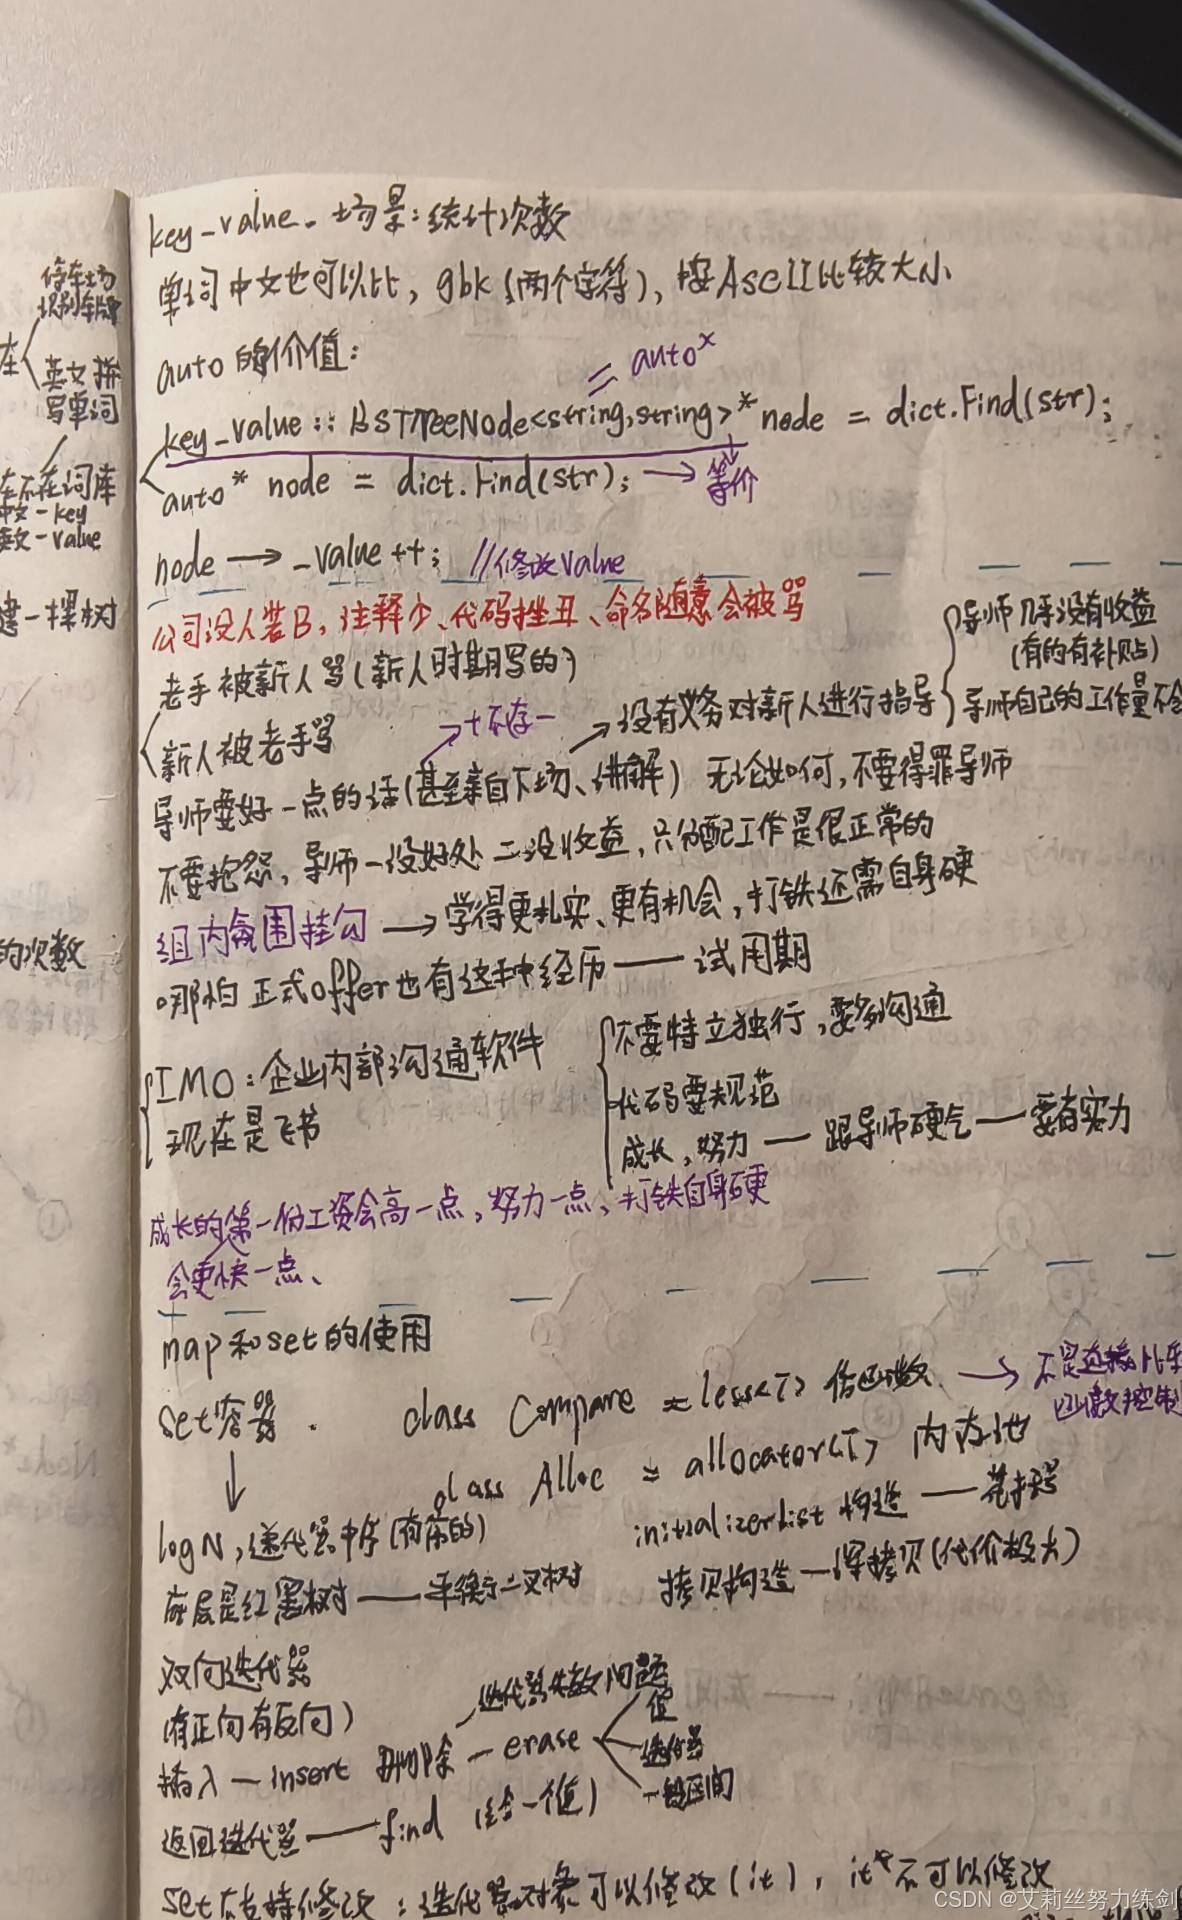 停车场
识别车牌
在
英文拼
写单词
在不在词库
中文-key
英文-value
建一棵树
的次数
key_value. 场景:统计次数
单词中文也可以比, gbk(两个字符), 按ASCII比较大小
auto的价值:
= auto*
key_value::BSTreeNode<string,string>* node = dict.Find(str);
auto* node = dict.Find(str); → 等价
node → _value++; //修改value
公司没人装B, 注释少、代码挫丑、命名随意会被骂
老手被新人骂(新人时期写的)
导师几乎没有收益
(有的有补贴)
新人被老手骂
十不存一
没有义务对新人进行指导
导师自己的工作量不会
导师要好一点的话(甚至亲自下场、讲解) 无论如何, 不要得罪导师
不要抱怨, 导师一没好处 二没收益, 只分配工作是很正常的
组内氛围挂勾 → 学得更扎实、更有机会, 打铁还需自身硬
哪怕正式offer也有这种经历 — 试用期
IMO: 企业内部沟通软件
现在是飞书
不要特立独行, 要多沟通
代码要规范
成长, 努力 — 跟导师硬气 — 要有实力
成长的第一份工资会高一点, 努力一点, 打铁自身硬
会更快一点、
map和set的使用
set容器. class Compare = less<T> 仿函数 → 不是直接比较
函数控制
class Alloc = allocator<T> 内存池
logN, 迭代器中序(有序的)
initializerlist 构造 — 花括号
底层是红黑树 — 平衡二叉树
拷贝构造 — 深拷贝(代价极大)
双向迭代器
(有正向有反向)
迭代器失效问题
插入 — insert 删除 — erase
值
迭代器
一段区间
返回迭代器 — find (给一个值)
set不支持修改: 迭代器对象可以修改(it), it*不可以修改
CSDN @艾莉丝努力练剑